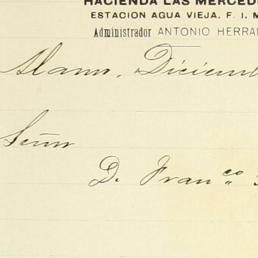 HACIENDA LAS MERCED
ESTACION AGUA VIEJA, F. I. M
Administrador ANTONIO HERRA
Alamo, Diciem
Señor
D. Franco